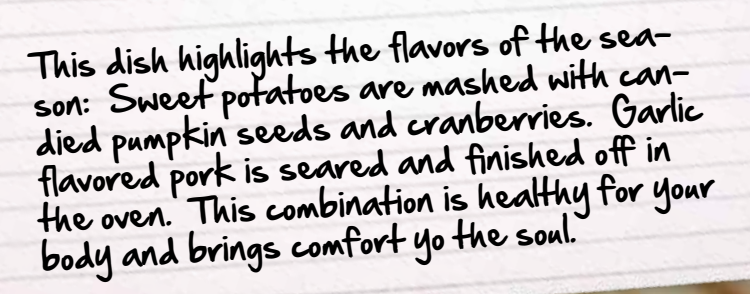 This dish highlights the flavors of the sea-
son: Sweet potatoes are mashed with can-
died pumpkin seeds and cranberries. Garlic
flavored pork is seared and finished off in
the oven. This combination is healthy for your
body and brings comfort yo the soul.